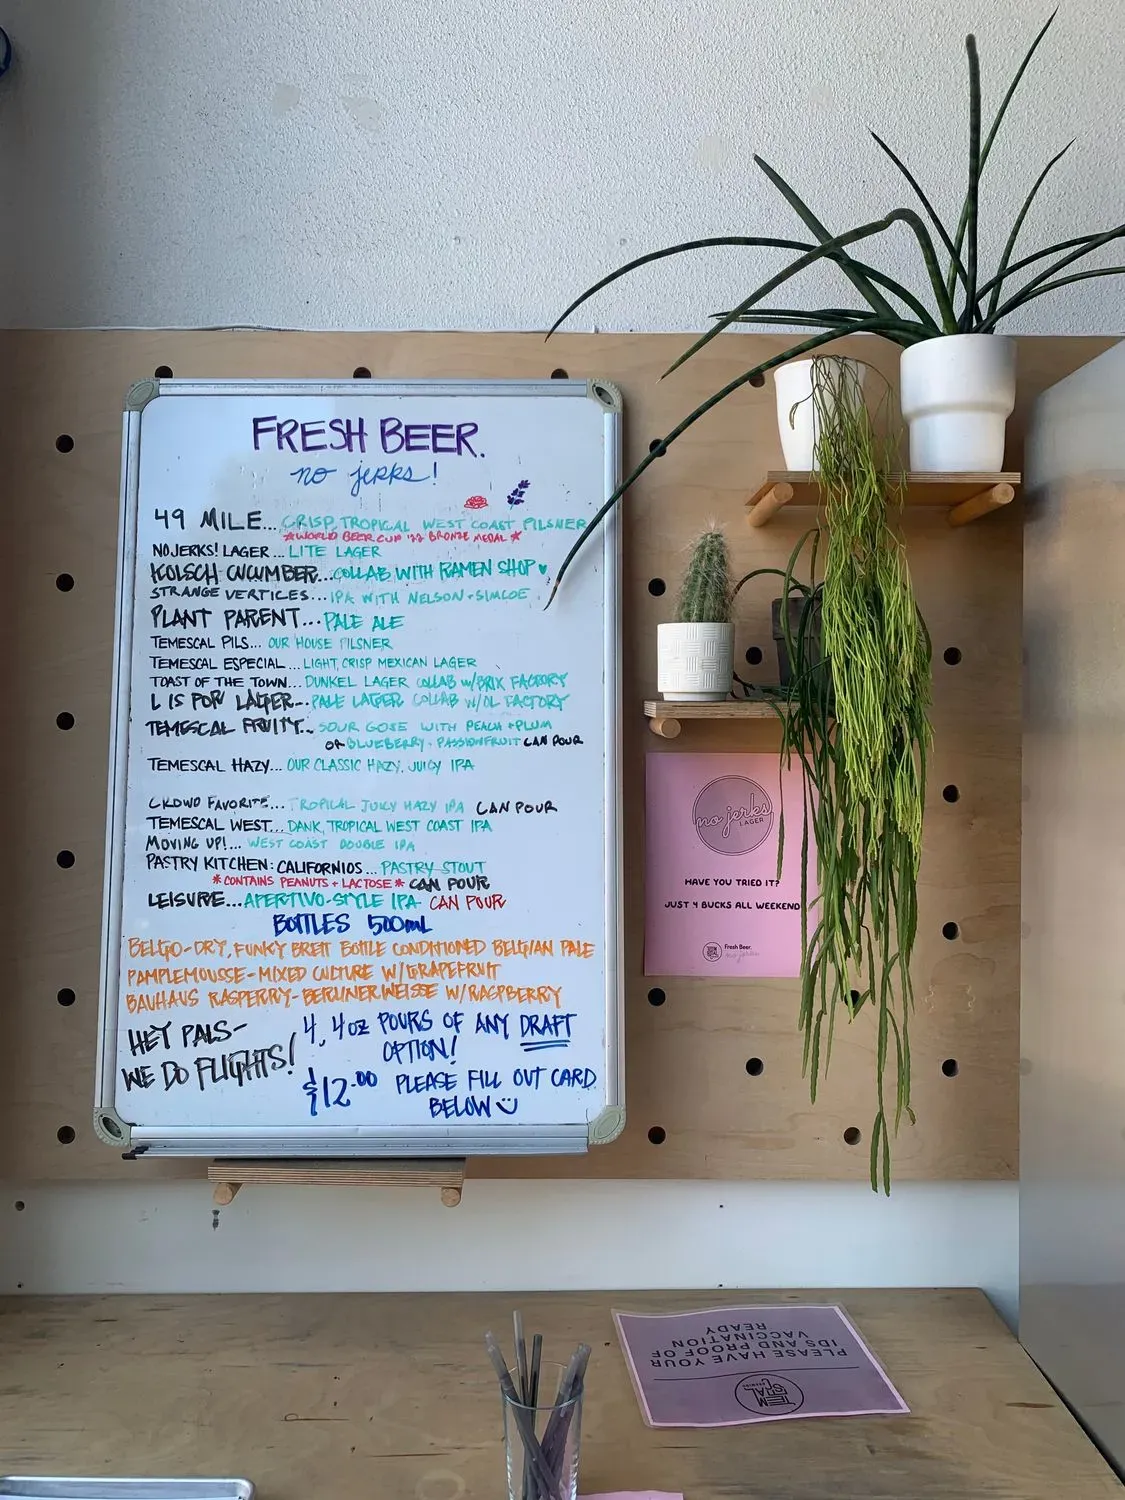 FRESH BEER.
no jerks!
49 MILE... CRISP, TROPICAL WEST COAST PILSNER
*WORLD BEER CUP '22 BRONZE MEDAL*
NO JERKS! LAGER... LITE LAGER
KOLSCH CUCUMBER... COLLAB WITH RAMEN SHOP ♥
STRANGE VERTICES... IPA WITH NELSON + SIMCOE
PLANT PARENT... PALE ALE
TEMESCAL PILS... OUR HOUSE PILSNER
TEMESCAL ESPECIAL... LIGHT, CRISP MEXICAN LAGER
TOAST OF THE TOWN... DUNKEL LAGER COLLAB W/BRIX FACTORY
L IS FOR LAGER... PALE LAGER COLLAB W/OL FACTORY
TEMESCAL FRUITY... SOUR GOSE WITH PEACH + PLUM
OR BLUEBERRY - PASSIONFRUIT CAN POUR
TEMESCAL HAZY... OUR CLASSIC HAZY, JUICY IPA
CROWD FAVORITE... TROPICAL JUICY HAZY IPA CAN POUR
TEMESCAL WEST... DANK, TROPICAL WEST COAST IPA
MOVING UP!... WEST COAST DOUBLE IPA
PASTRY KITCHEN: CALIFORNIOS... PASTRY STOUT
*CONTAINS PEANUTS + LACTOSE* CAN POUR
LEISURE... APERTIVO-STYLE IPA CAN POUR
BOTTLES 500mL
BELGO-DRY, FUNKY BRETT BOTTLE CONDITIONED BELGIAN PALE
PAMPLEMOUSSE-MIXED CULTURE W/GRAPEFRUIT
BAUHAUS RASPERRY-BERLINERWEISSE W/RASPBERRY
HEY PALS-
WE DO FLIGHTS!
4, 4oz POURS OF ANY DRAFT
OPTION!
$12.00 PLEASE FILL OUT CARD
BELOW
no jerks
LAGER
HAVE YOU TRIED IT?
JUST 4 BUCKS ALL WEEKEND
Fresh Beer.
no jerks
PLEASE HAVE YOUR
IDS AND PROOF OF
VACCINATION
READY
TEMESCAL
BREWING